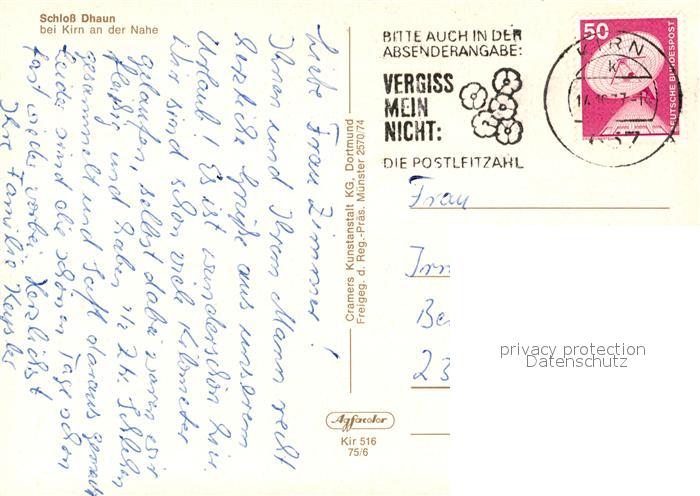 Schloß Dhaun
bei Kirn an der Nahe
Liebe Frau Zimmer!
Ihnen und Ihrem Mann recht
herzliche Grüße aus unserem
Urlaub! Es ist wunderschön hier.
Wir sind schon viele Kilometer
gelaufen, selbst dabei waren wir
fleißig und haben 1½ Ztr. Schlehen
gesammelt und Saft daraus gemacht
Leider sind die schönen Tage schon
fast wieder vorbei. Herzlichst
Ihre Familie
Cramers Kunstanstalt KG, Dortmund
Freigeg. d. Reg.-Präs. Münster 2570/74
BITTE AUCH IN DER
ABSENDERANGABE:
VERGISS
MEIN
NICHT:
DIE POSTLEITZAHL
KIRN
50
DEUTSCHE BUNDESPOST
Frau
23
privacy protection
Datenschutz
Agfacolor
Kir 516
75/6